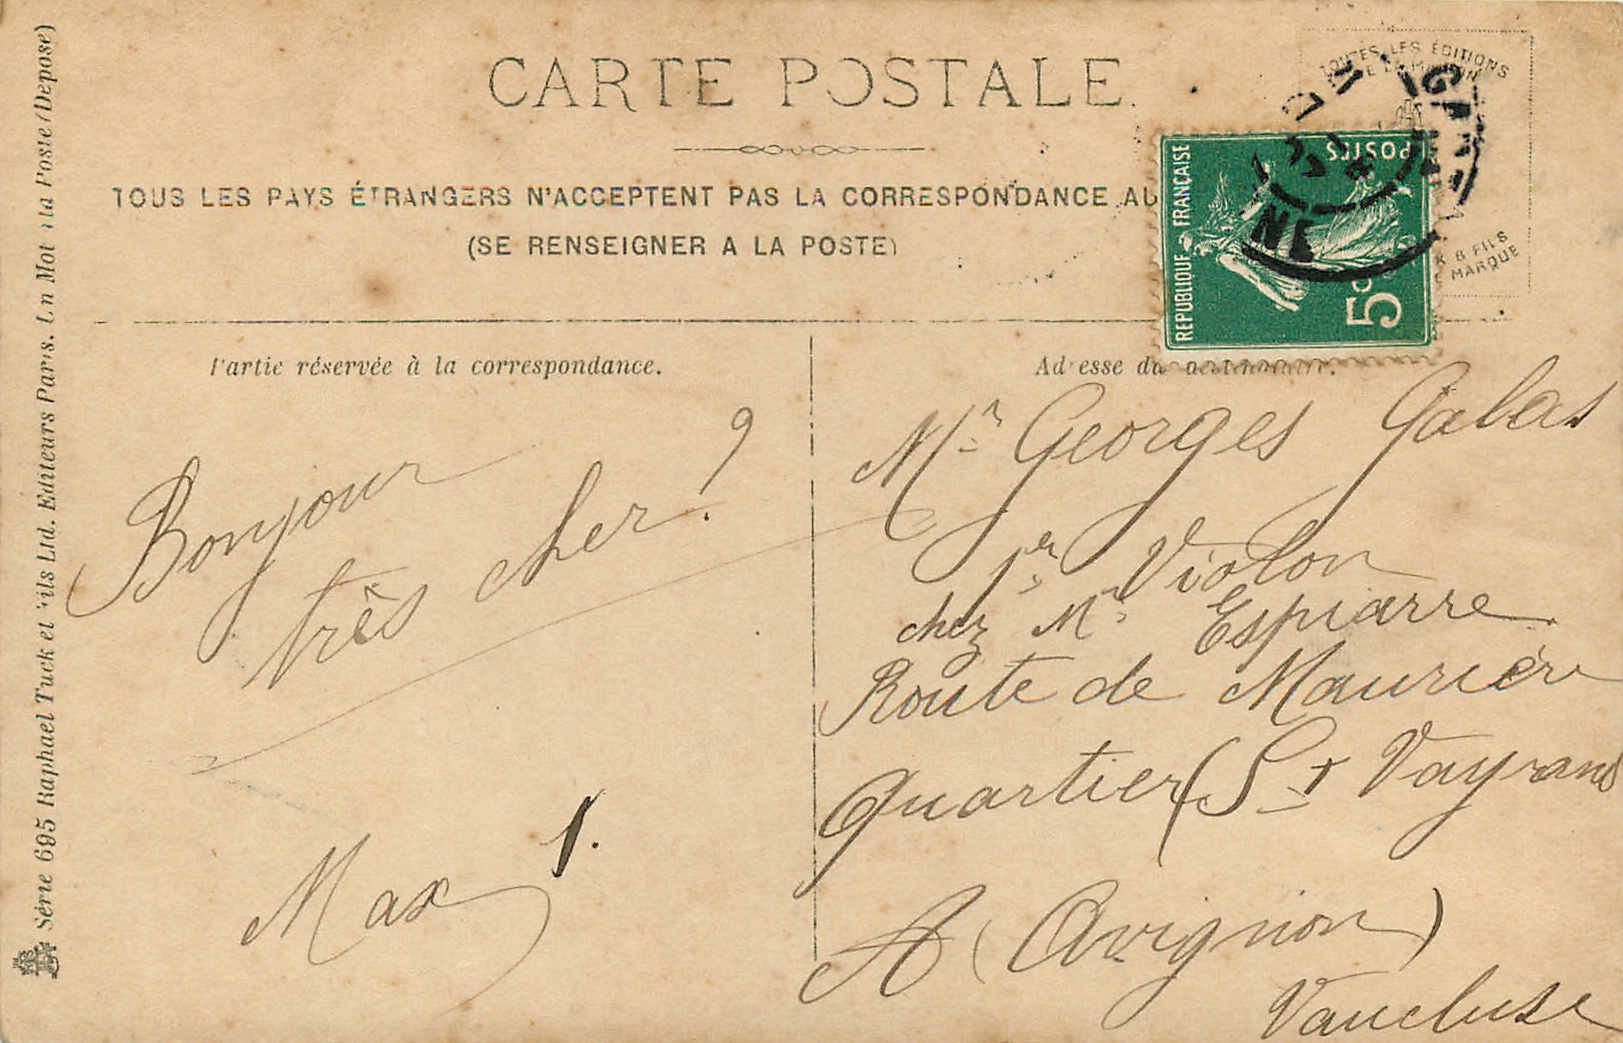 CARTE POSTALE
TOUS LES PAYS ÉTRANGERS N'ACCEPTENT PAS LA CORRESPONDANCE AU
(SE RENSEIGNER A LA POSTE)
TOUTES LES ÉDITIONS
DE LA MAISON
K & FILS
MARQUE
REPUBLIQUE - FRANÇAISE
POSTES
5c
Partie réservée à la correspondance.
Bonjour
très cher ?
Max 1.
Adresse du destinataire.
Mr Georges Galas
1er Violon
chez Mr Espiarre
Route de
Quartier (St
A (Avignon)
Vaucluse
Série 695 Raphael Tuck et Fils Ltd. Editeurs Paris. Un Mot à la Poste (Déposé)